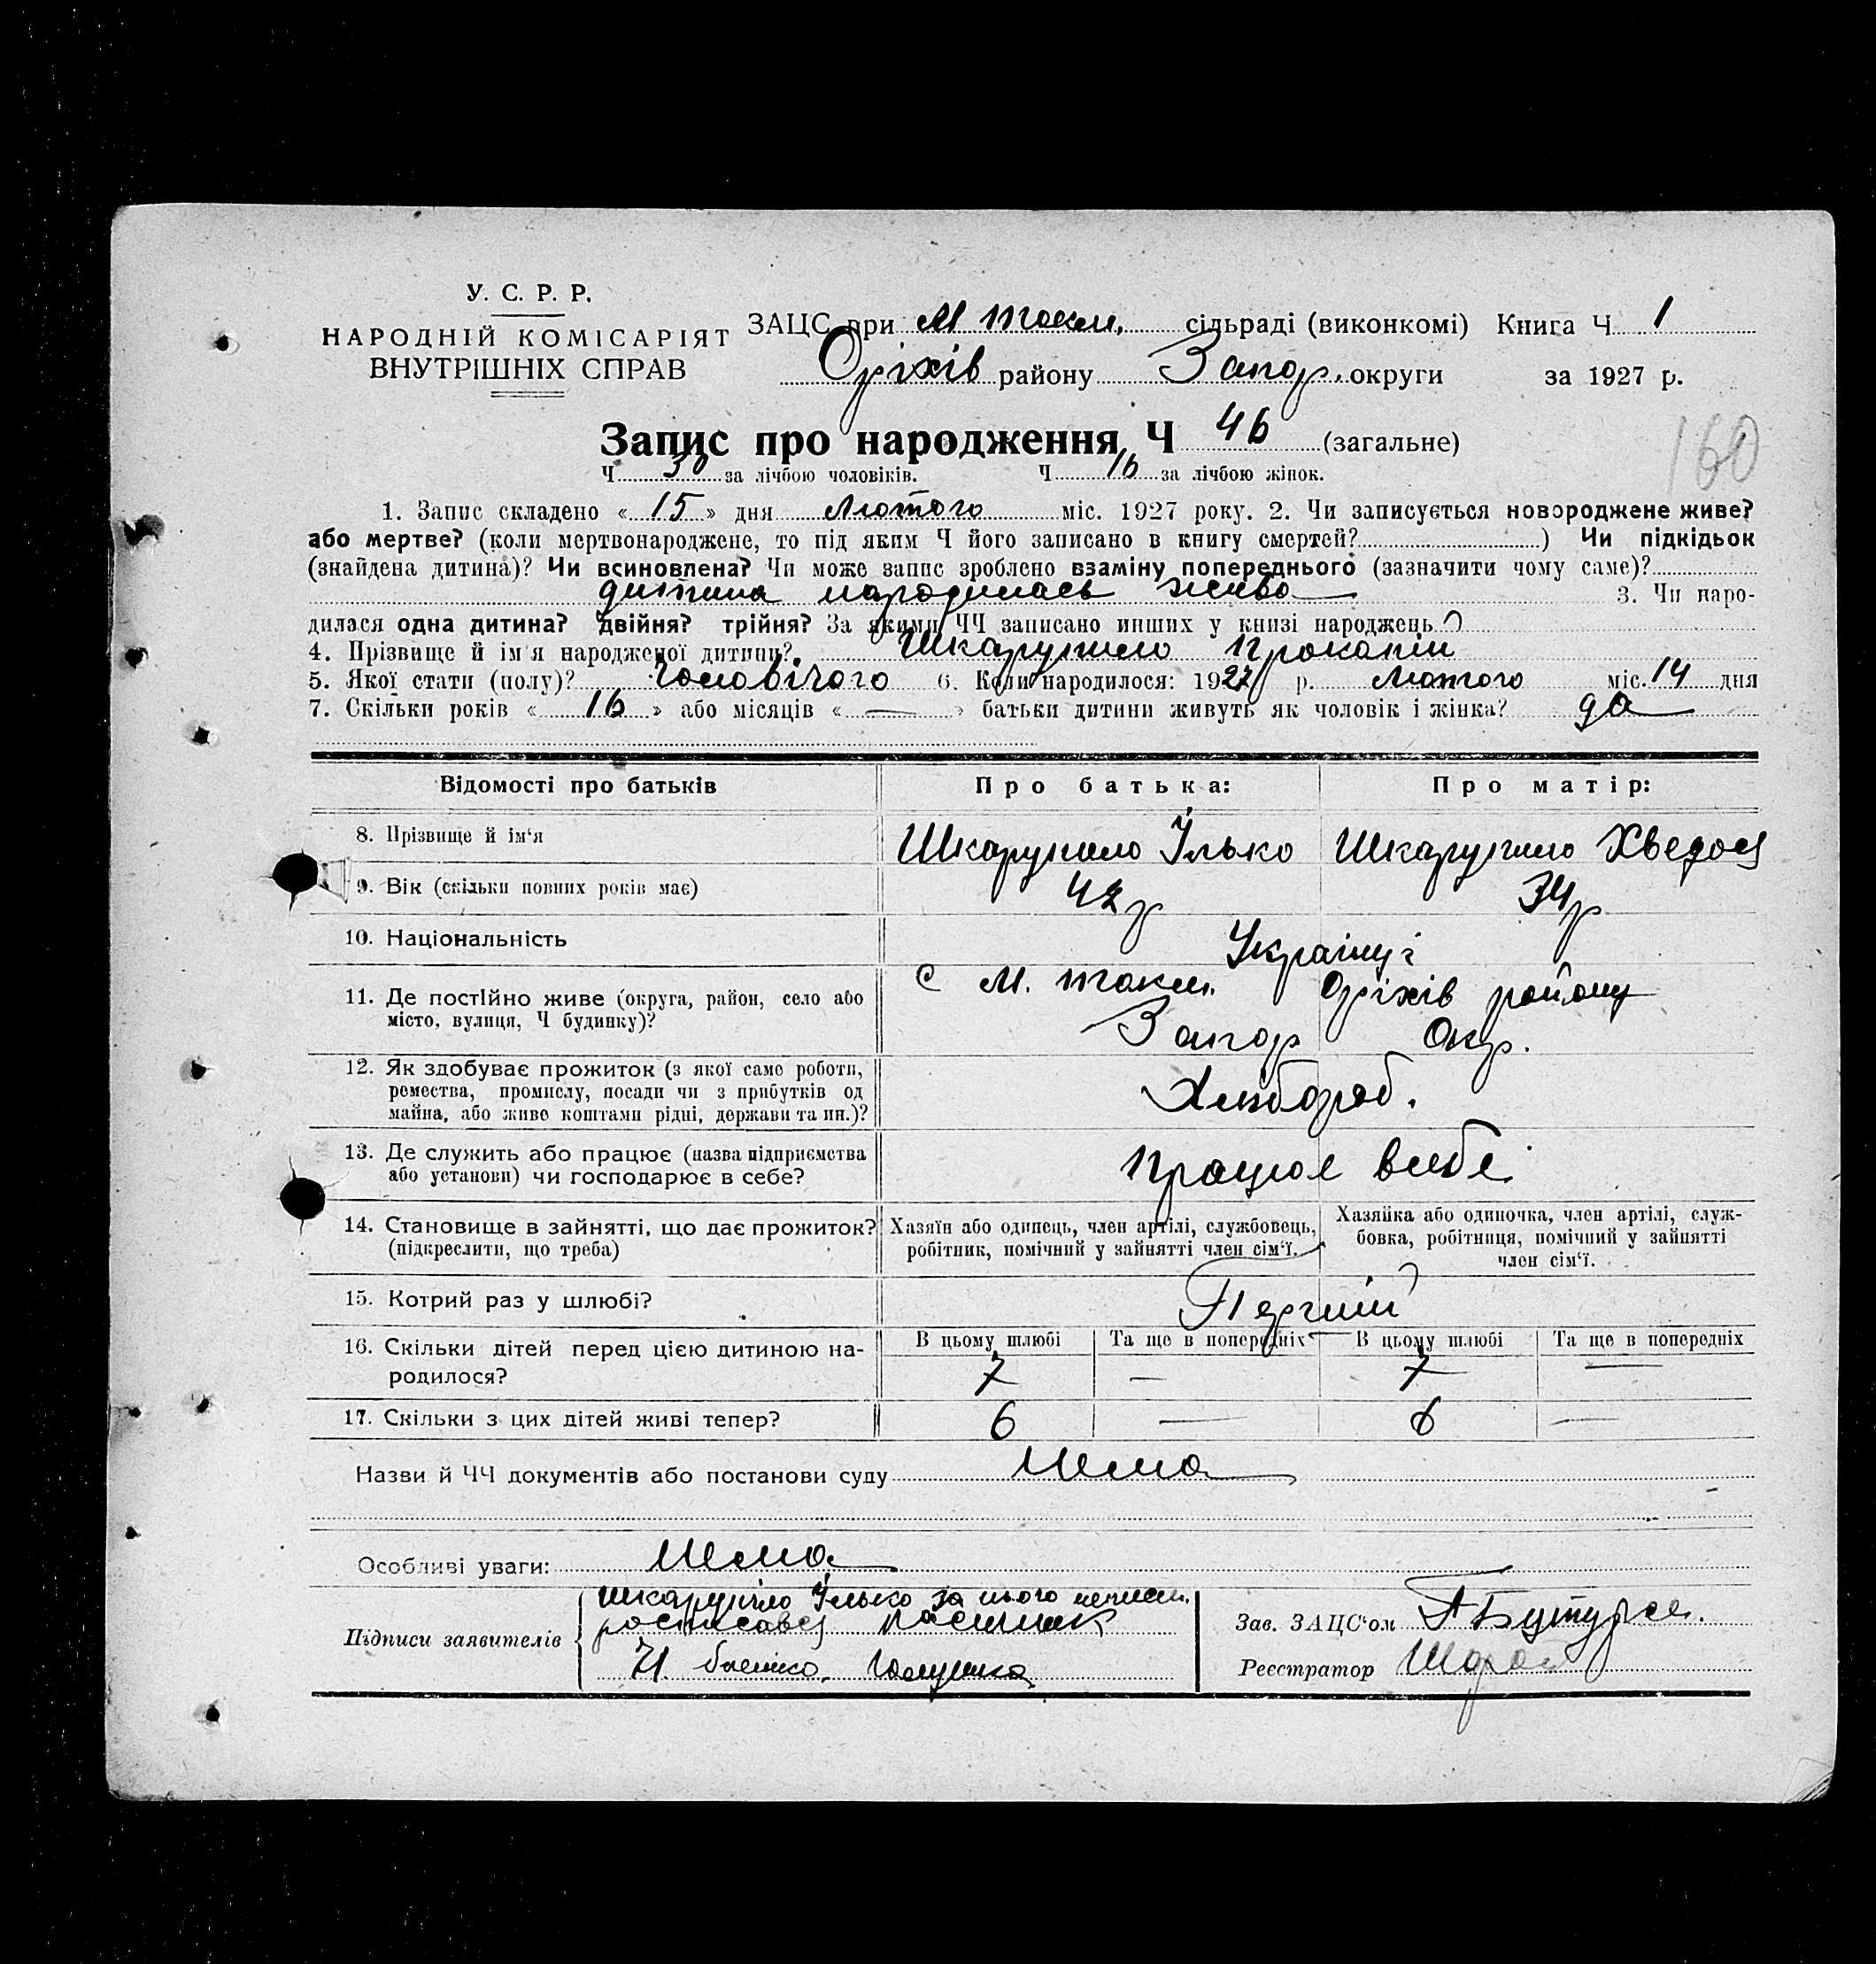 У. С. Р. Р.
НАРОДНІЙ КОМІСАРІЯТ
ВНУТРІШНІХ СПРАВ
ЗАЦС при М Токм. сільраді (виконкомі) Книга Ч 1
Оріхів району Запор. округи за 1927 р.
160
Запис про народження Ч 46 (загальне)
Ч 30 за лічбою чоловіків. Ч 16 за лічбою жінок.
1. Запис складено « 15 » дня Лютого міс. 1927 року. 2. Чи записується новороджене живе?
або мертве? (коли мертвонароджене, то під яким Ч його записано в книгу смертей? ) Чи підкідьок
(знайдена дитина)? Чи всиновлена? Чи може запис зроблено взаміну попереднього (зазначити чому саме)?
дитина народилась жива 3. Чи наро-
дилася одна дитина? двійня? трійня? За якими ЧЧ записано инших у книзі народжень
4. Прізвище й ім'я народженої дитини? Шкарупило
5. Якої стати (полу)? Чоловічого 6. Коли народилося: 1927 р. Лютого міс. 14 дня
7. Скільки років « 16 » або місяців « — » батьки дитини живуть як чоловік і жінка? да
Відомості про батьків Про батька: Про матір:
8. Прізвище й ім'я Шкарупило Ілько Шкарупило Хведося
9. Вік (скільки повних років має) 42 р 34 р
10. Національність Українці
11. Де постійно живе (округа, район, село або
місто, вулиця, Ч будинку)?
С М. Токм. Оріхів району
Запор Окр.
12. Як здобуває прожиток (з якої саме роботи,
ремества, промислу, посади чи з прибутків од
майна, або живе коштами рідні, держави та ин.)?
Хлібороб.
13. Де служить або працює (назва підприємства
або установи) чи господарює в себе?
Працює в себе
14. Становище в зайнятті, що дає прожиток?
(підкреслити, що треба)
Хазяїн або одинець, член артілі, службовець,
робітник, помічний у зайнятті член сім'ї.
Хазяйка або одиночка, член артілі, служ-
бовка, робітниця, помічний у зайнятті
член сім'ї.
15. Котрий раз у шлюбі? Перший
16. Скільки дітей перед цією дитиною на-
родилося?
В цьому шлюбі Та ще в попередніх В цьому шлюбі Та ще в попередніх
7 — 7 —
17. Скільки з цих дітей живі тепер? 6 — 6 —
Назви й ЧЧ документів або постанови суду Нема
Особливі уваги: Нема
Підписи заявителів
Шкарупило Ілько за нього
росписався
Зав. ЗАЦС'ом
Реєстратор